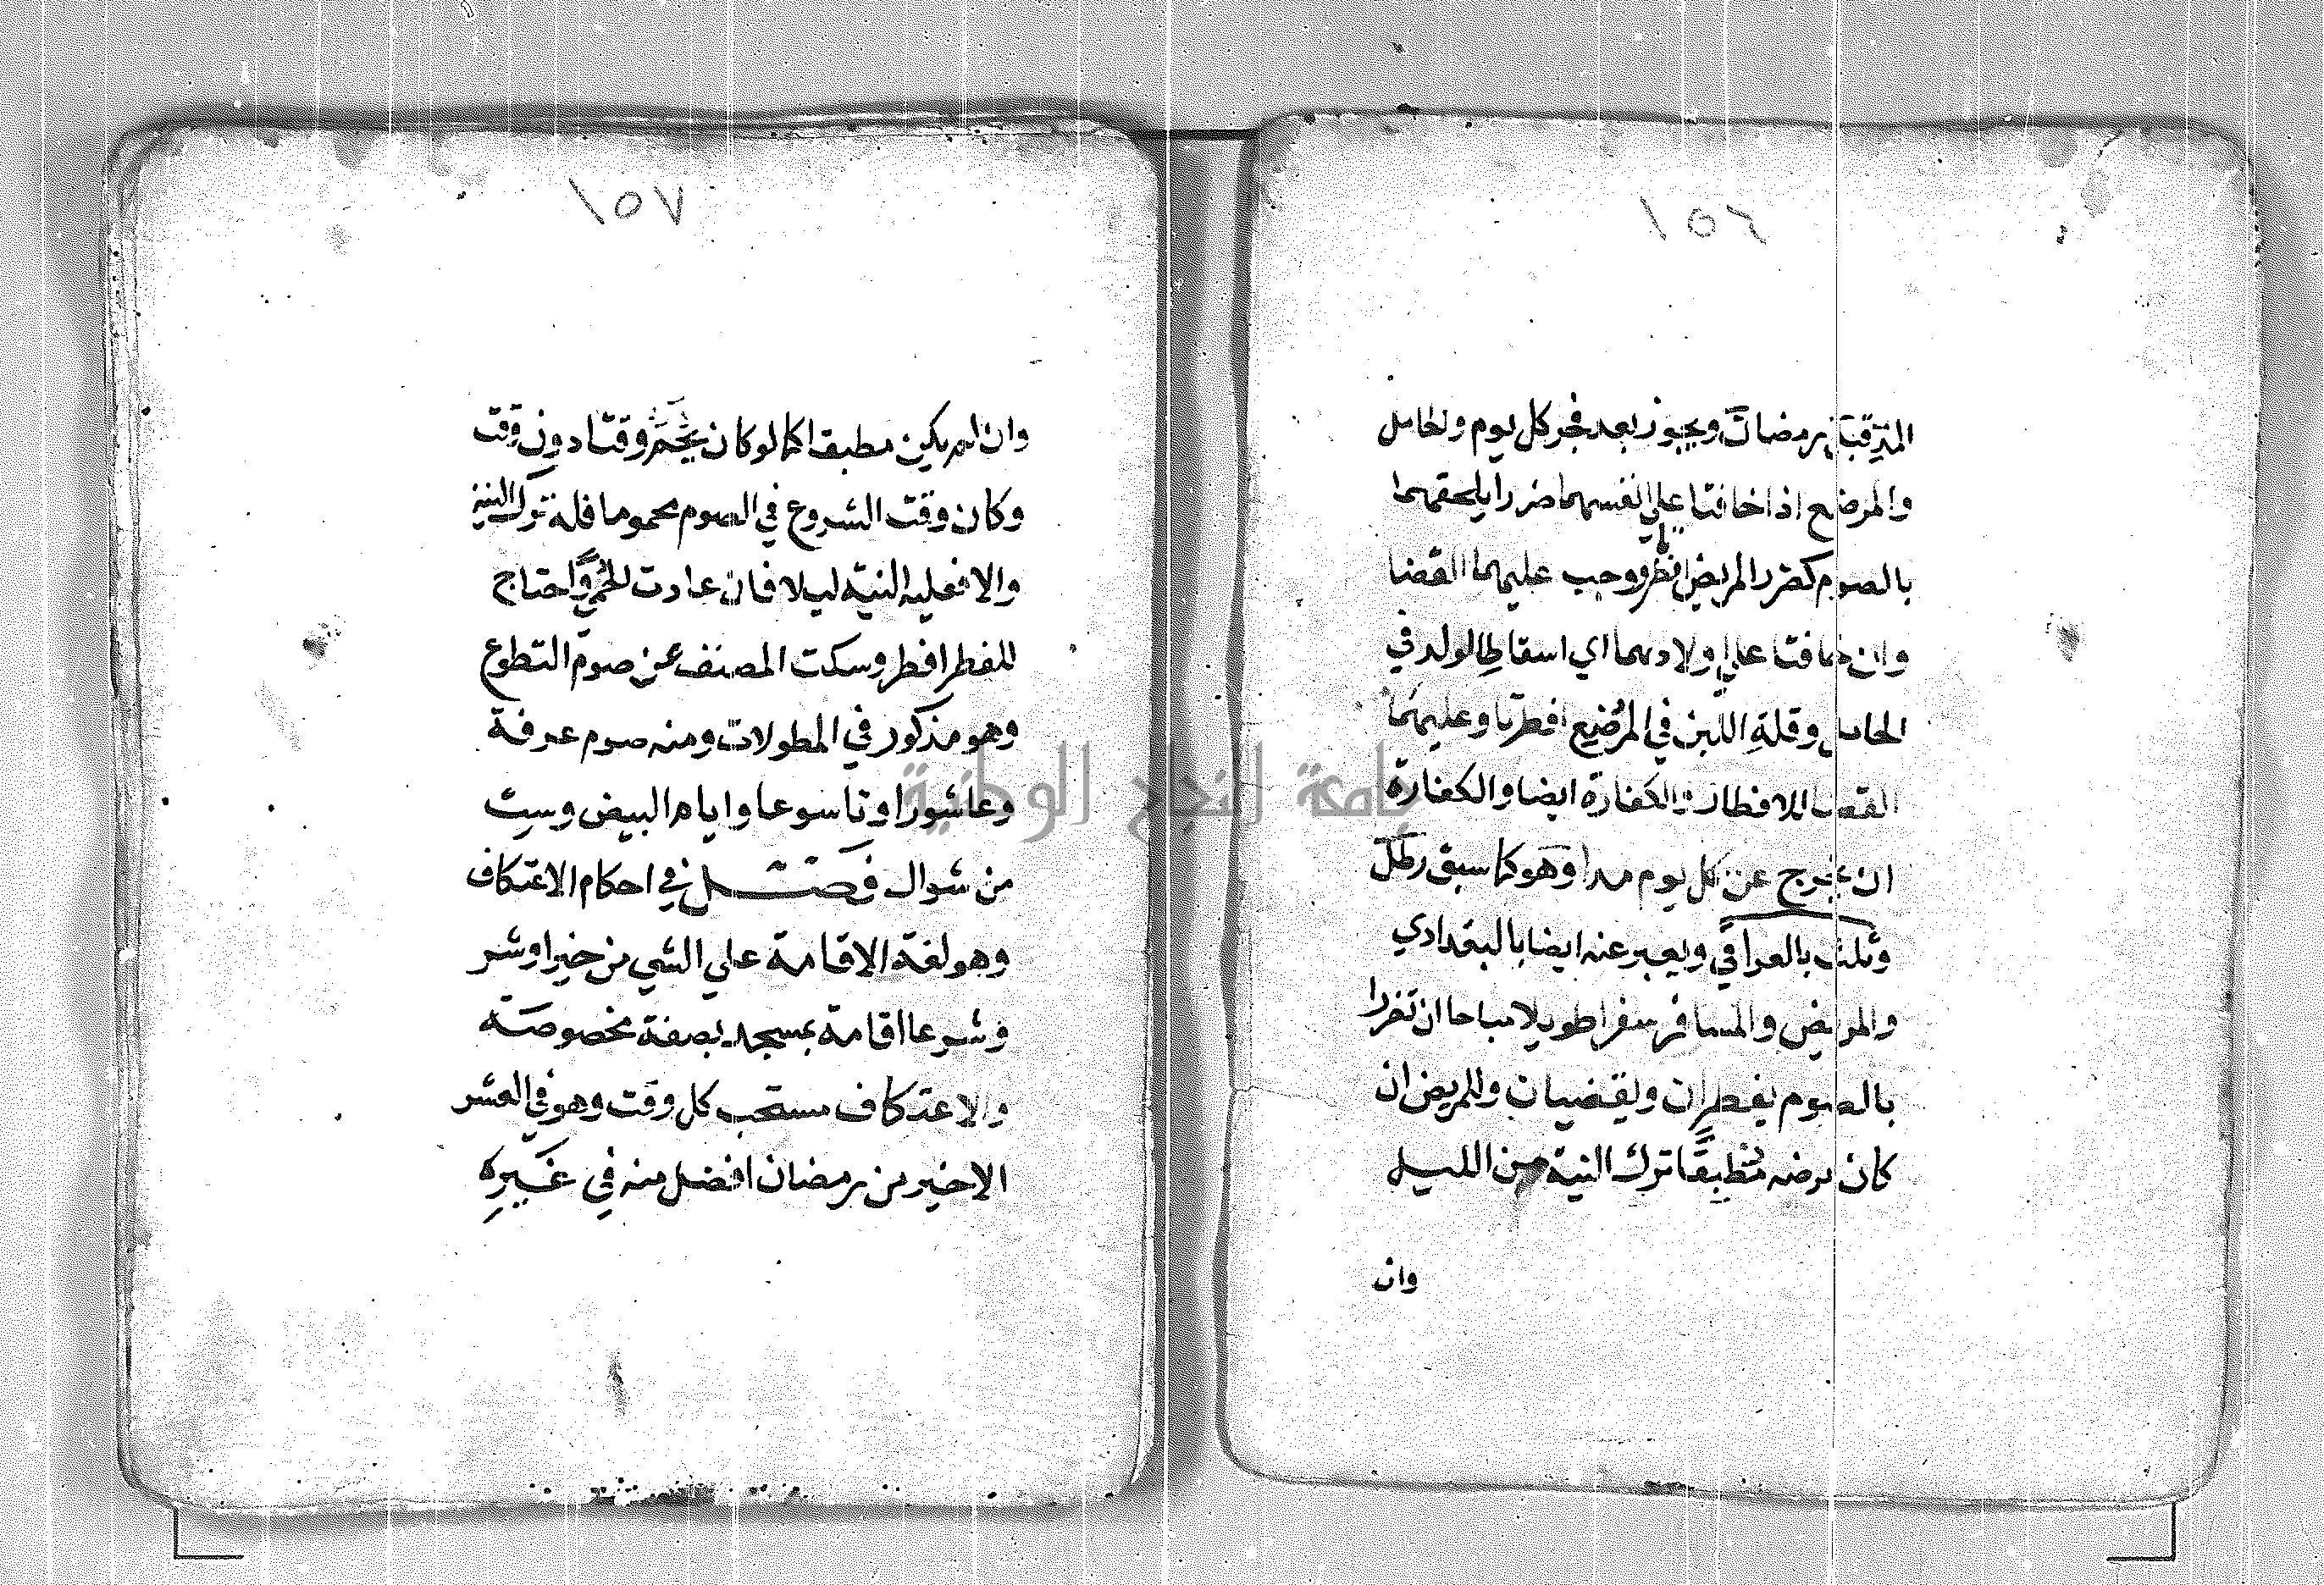 ١٥٦
المترقبة في رمضان ويجوز بعد فجر كل يوم والحامل
والمرضع اذا خافتا علي انفسهما ضررا يلحقهما
بالصوم كضرر المريض افطرتا ووجب عليهما القضا
وان خافتا علي اولادهما اي اسقاط الولد في
الحامل وقلة اللبن في المرضع افطرتا وعليهما
القضا للافطار والكفارة ايضا والكفارة
ان يخرج عن كل يوم مدا وهو كما سبق رطل
وثلث بالعراقي ويعبر عنه ايضا بالبغدادي
والمريض والمسافر سفرا طويلا مباحا ان تضررا
بالصوم يفطران ويقضيان وللمريض ان
كان مرضه مطبقا ترك النية من الليل
وان
١٥٧
وان لم يكن مطبقا كما لو كان يحم وقتا دون وقت
وكان وقت الشروع في الصوم محموما فله ترك النية
والا فعليه النية ليلا فان عادت الحمي واحتاج
للفطر افطر وسكت المصنف عن صوم التطوع
وهو مذكور في المطولات ومنه صوم عرفة
وعاشورا وتاسوعا وايام البيض وست
من شوال فصل في احكام الاعتكاف
وهو لغة الاقامة علي الشي من خير او شر
وشرعا اقامة بمسجد بصفة مخصوصة
والاعتكاف مستحب كل وقت وهو في العشر
الاخير من رمضان افضل منه في غيره
جامعة النجاح الوطنية